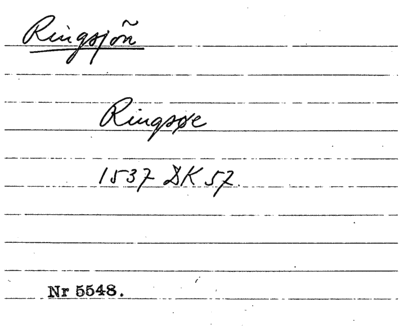 Ringsjön
Ringsøe
1537 DK 57.
Nr 5548.